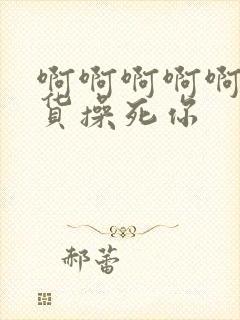 啊啊啊啊啊
货操死你
郝蕾